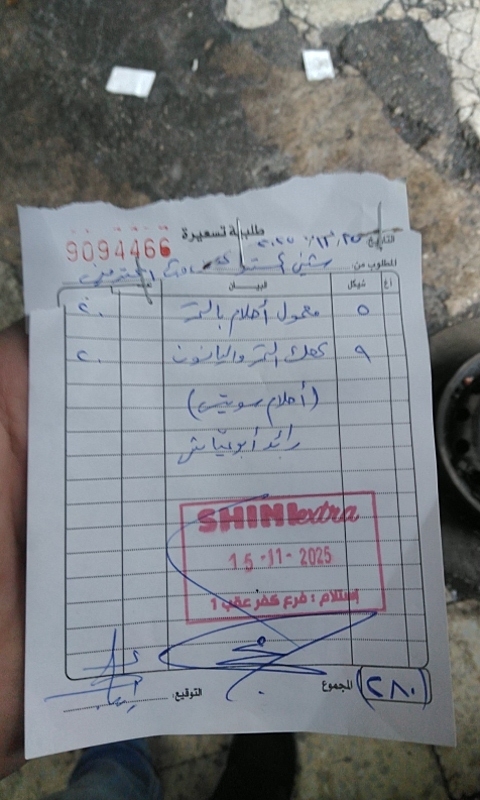 طلبية تسعيرة
9094466
التاريخ
المطلوب من:
أغ شيكل البيان
٥ معمول أحلام بالتمر ٢٠
٩ كعك التمر واليانسون ٢٠
(أحلام سويتس)
رائد أبو عياش
SHINI extra
15-11-2025
إستلام : فرع كفر عقب 1
المجموع (٢٨٠)
التوقيع: